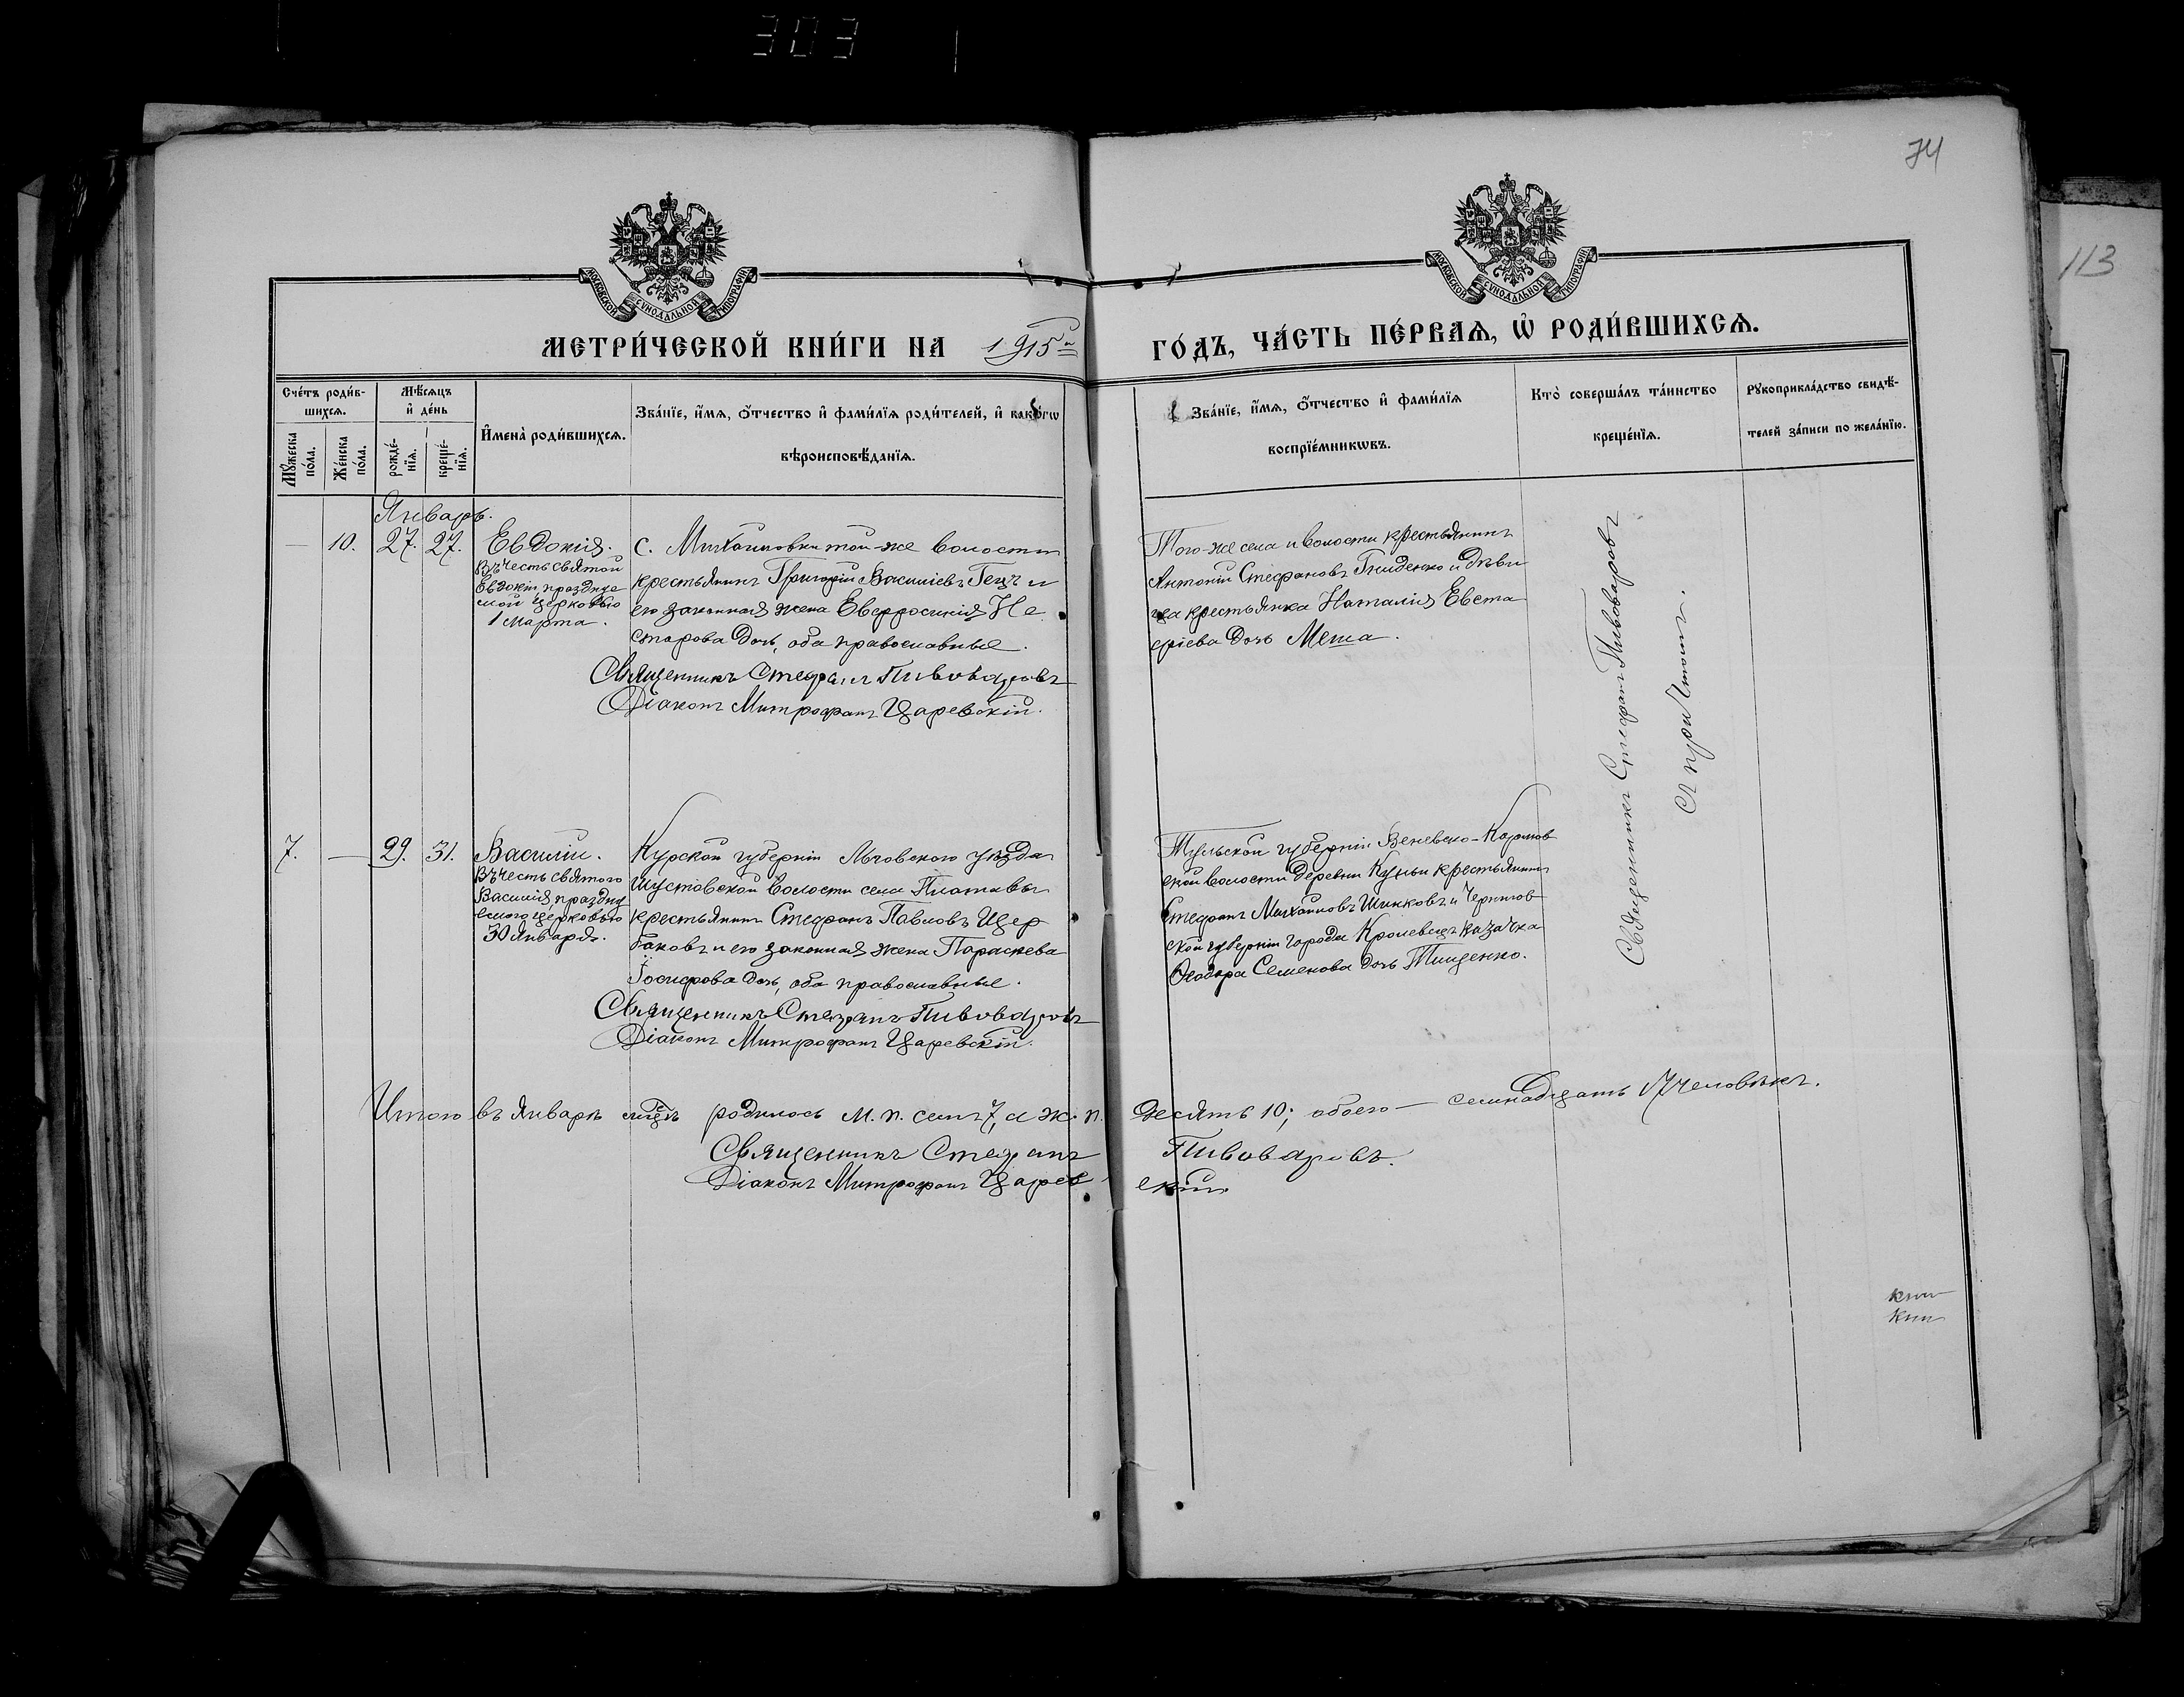 303
74
113
МОСКОВСКОЙ СУНОДАЛЬНОЙ ТИПОГРАФІИ
МОСКОВСКОЙ СУНОДАЛЬНОЙ ТИПОГРАФІИ
МЕТРИ́ЧЕСКОЙ КНИ́ГИ НА 1915й
ГО́ДЪ, ЧА́СТЬ ПЕ́РВАѦ, Ѽ РОДИ́ВШИХСѦ.
Сче́тъ роди́в-
шихсѧ.
Мꙋ́жеска
по́ла.
Же́нска
по́ла.
Мѣ́сѧцъ
и҆ де́нь
рожде́-
нїѧ.
креще́-
нїѧ.
И҆мена̀ роди́вшихсѧ.
Зва́нїе, и҆́мѧ, ѻ҆́тчество и҆ фами́лїѧ роди́телей, и҆ како́гѡ
вѣроисповѣ́данїѧ.
Зва́нїе, и҆́мѧ, ѻ҆́тчество и҆ фами́лїѧ
воспрїе́мникѡвъ.
Кто̀ соверша́лъ та́инство
креще́нїѧ.
Рꙋкоприкла́дство свидѣ́-
телей за́писи по жела́нїю.
Январь.
— 10. 27. 27.
Евдокія.
Въ честь святой
Евдокіи, празднуе
мой Церковью
1 Марта.
с. Михайловки той-же волости
крестьянинъ Григорій Василіевъ Гецъ и
его законная жена Евфросинія Не
старова дочь, оба православные.
Священникъ Стефанъ Пивоваровъ
Діаконъ Митрофанъ Царевскій.
Того-же села и волости крестьянинъ
Антоній Стефановъ Гниденко и дѣви
ца крестьянка Наталія Евста
фіева дочь Меша.
Священникъ Стефанъ Пивоваровъ
съ причтомъ.
7. — 29. 31.
Василій.
Въ честь святого
Василія, праздну
емого Церковью
30 Января.
Курской губерніи Льговского уѣзда
Шустовской волости села Платавы
крестьянинъ Стефанъ Павловъ Щер
баковъ и его законная жена Параскева
Іосифова дочь, оба православные.
Священникъ Стефанъ Пивоваровъ
Діаконъ Митрофанъ Царевскій.
Тульской губерніи Веневско-
ской волости деревни крестьянинъ
Стефанъ Михайловъ Шинковъ и Чернигов
ской губерніи города Кролевецъ казачка
Ѳеодора Семенова дочь Тищенко.
Итого въ Январѣ мцѣ родилось м. п. семь 7, а ж. п. десять 10; обоего — семнадцать 17 человѣкъ.
Священникъ Стефанъ Пивоваровъ.
Діаконъ Митрофанъ Царевскій